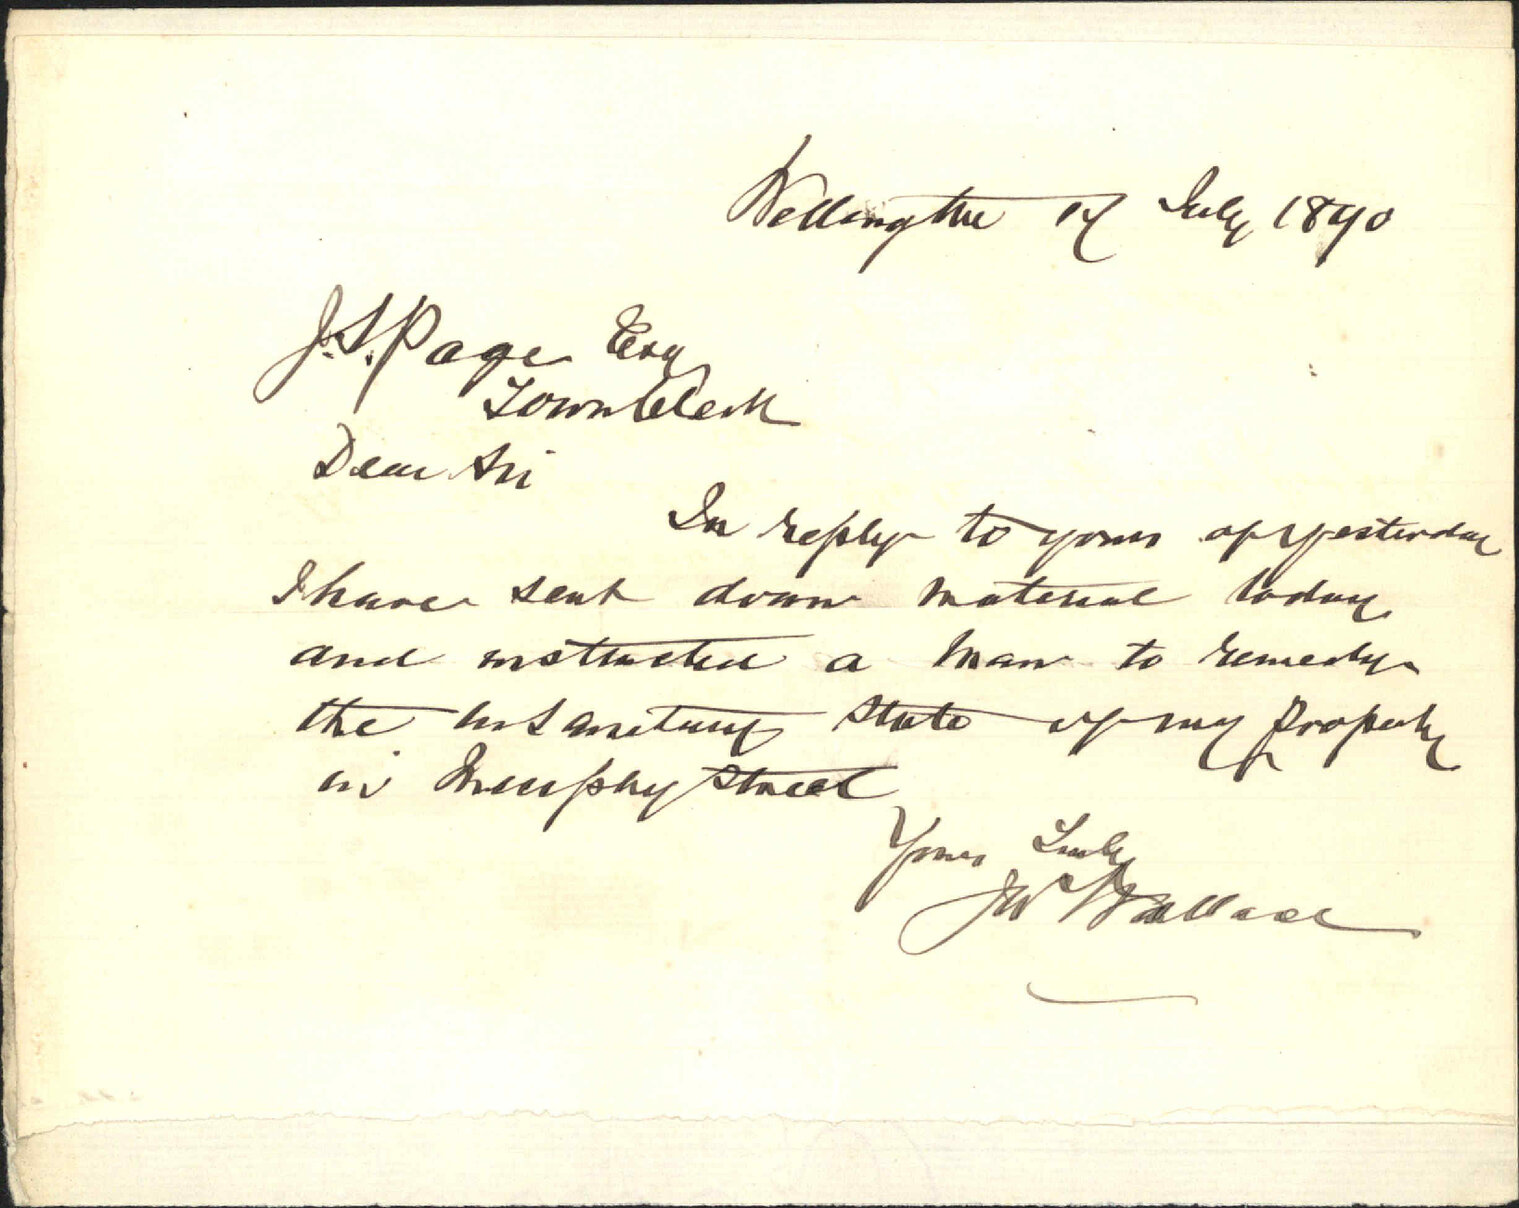 Wellington 14 July 1890
J.S. Page Esq
Town Clerk
Dear Sir
In reply to yours of yesterday
I have sent down material today
and instructed a man to remedy
the insanitary state of my property
in Murphy Street
Yours Truly
JW Wallace